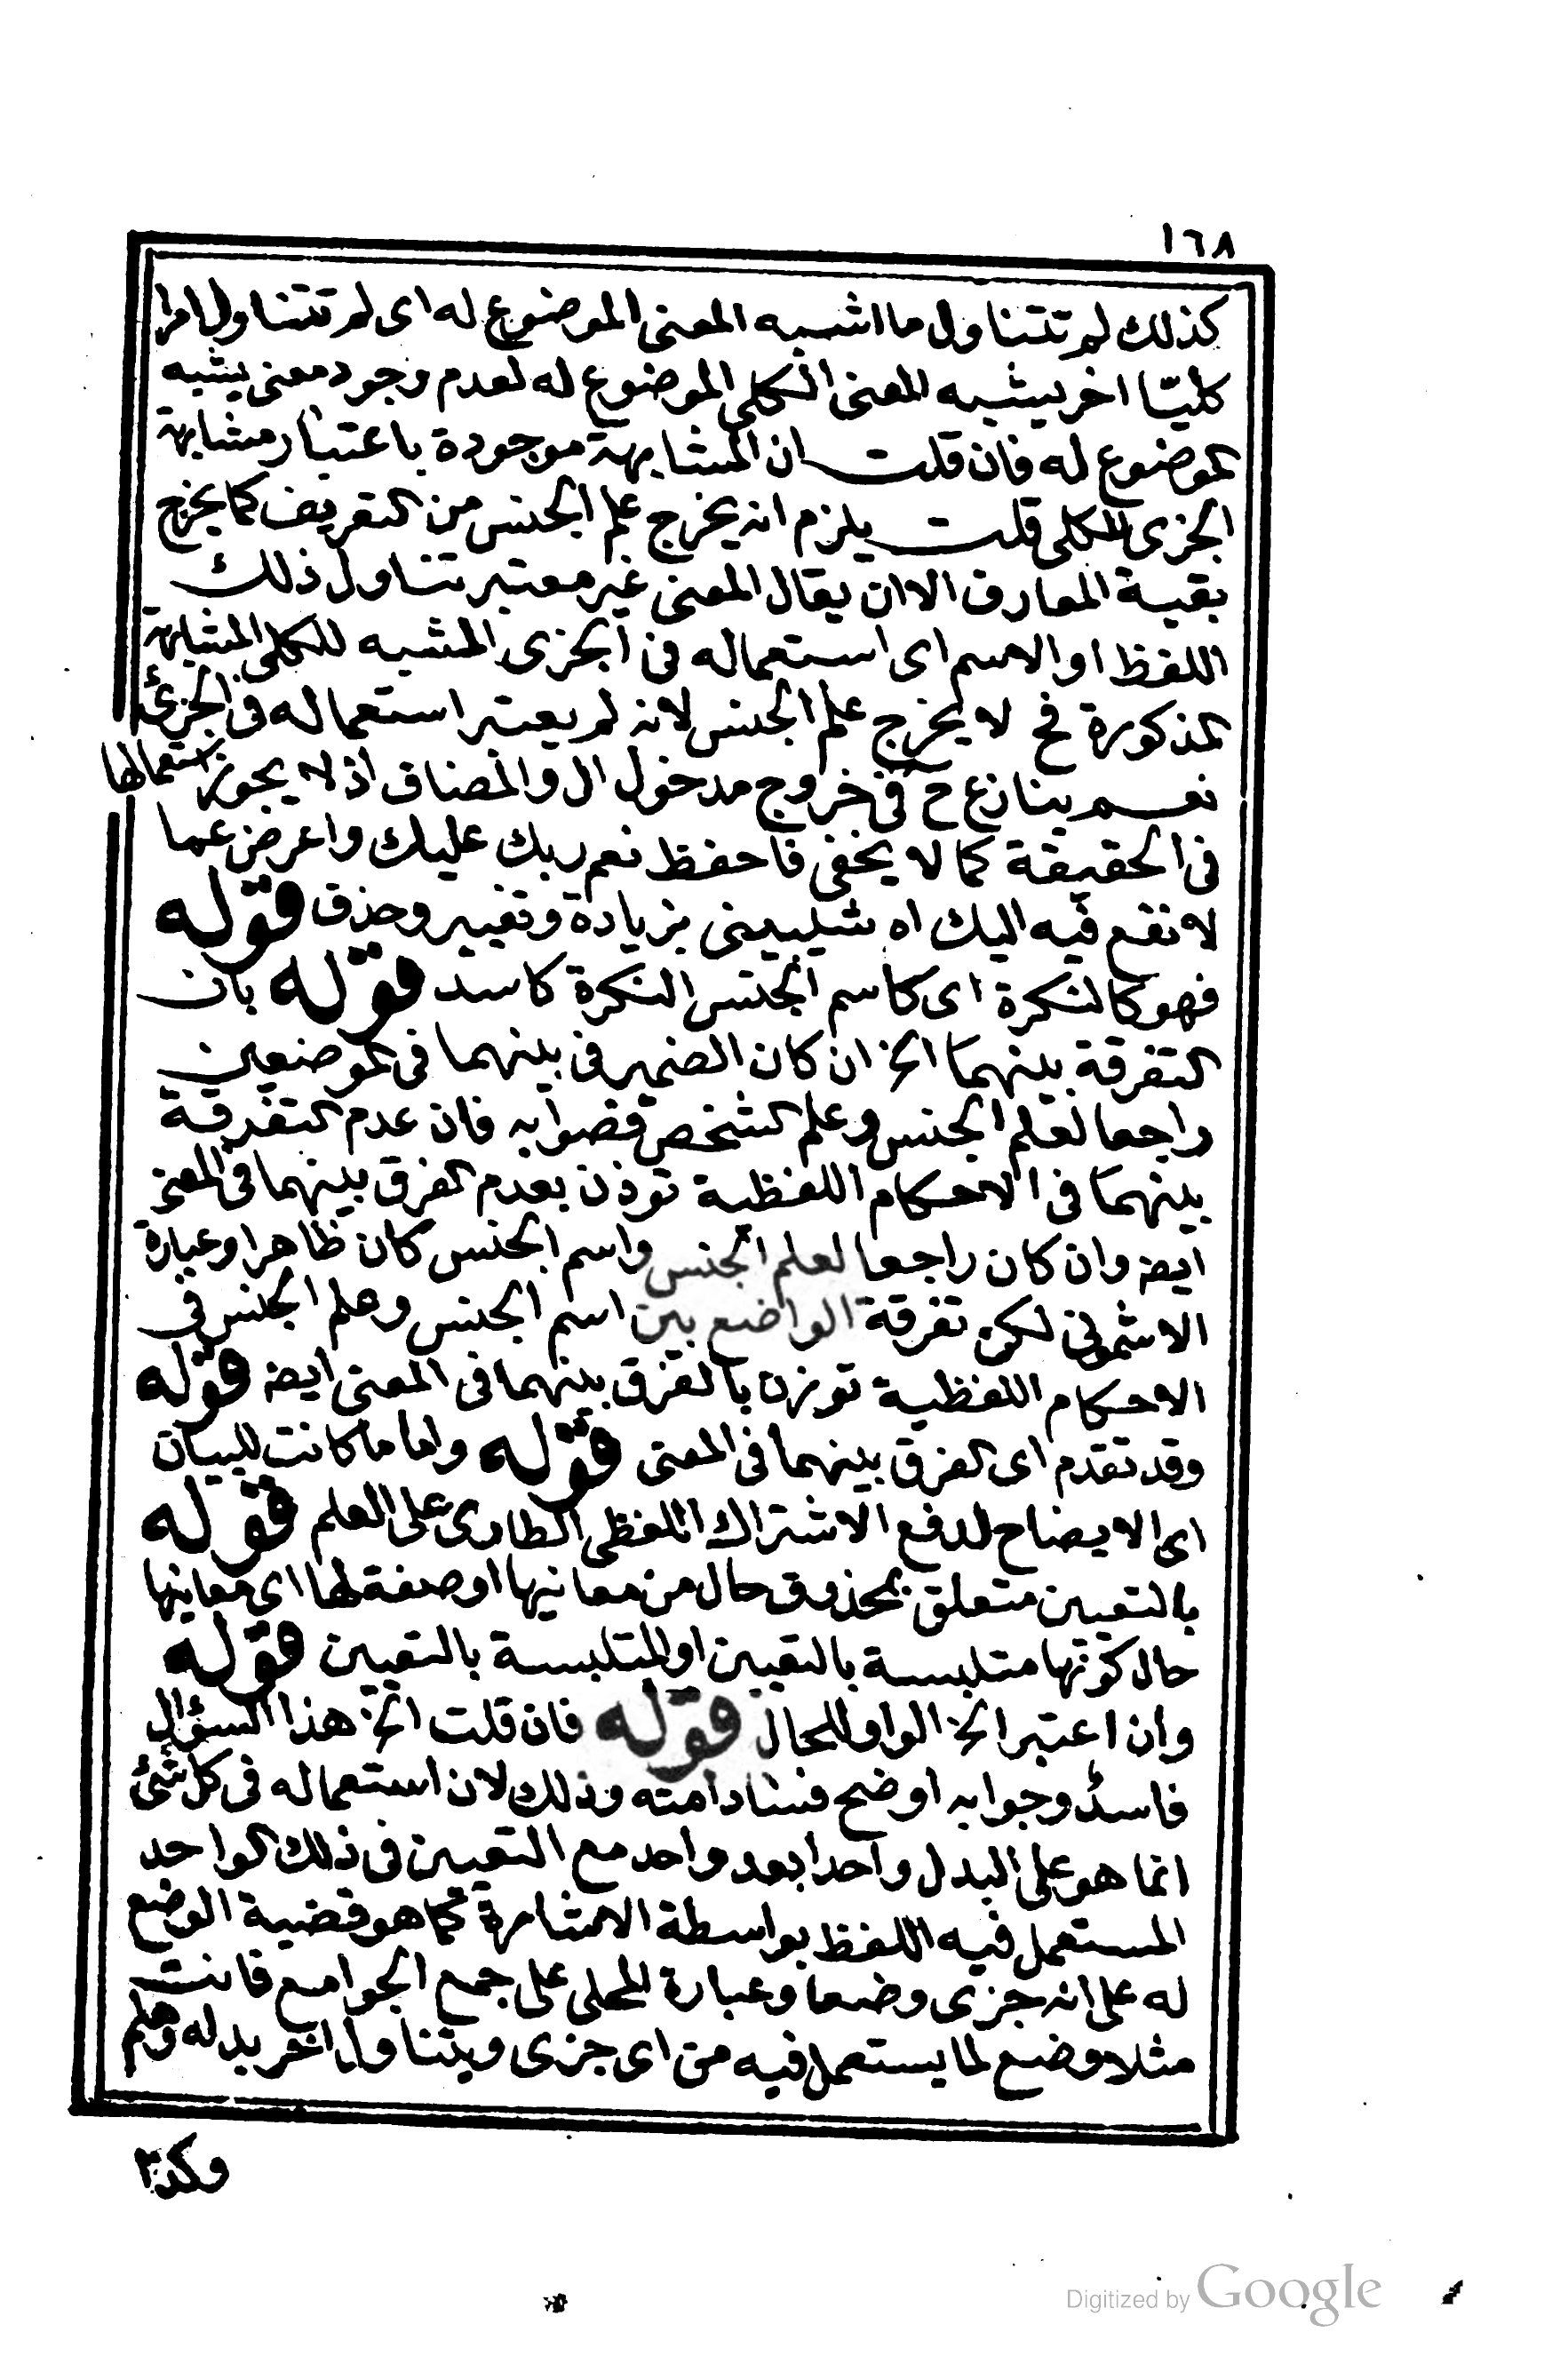 ١٦٨
كذلك لم تتناول ما اشبه المعنى الموضوع له اى لم تتناول امرا
كليّا اخر يشبه المعنى الكلى الموضوع له لعدم وجود معنى يشبه
الموضوع له فان قلت ان المشابهة موجودة باعتبار مشابهة
الجزى للكلى قلت يلزم انه يخرج علم الجنس من التعريف كما يخرج
بقية المعارف الا ان يقال المعنى غير معتبر تناول ذلك
اللفظ او الاسم اى استعماله فى الجزى المشبه للكلى المشابهة
المذكورة فح لا يخرج علم الجنس لانه لم يعتبر استعماله فى الجزئ
نعم ينازع ح فى خروج مدخول ال والمضاف اذ لا يجوز استعمالها
فى الحقيقة كما لا يخفى فاحفظ نعم ربك عليك واعرض عما
لا نفع فيه اليك اه شلبينى بزيادة وتغيير وحذف قوله
فهو كالنكرة اى كاسم الجنس النكرة كاسد قوله بان
التفرقة بينهما الخ ان كان الضمير فى بينهما فى الموضعين
راجعا لعلم الجنس وعلم الشخص فصوابه فان عدم التفرقة
بينهما فى الاحكام اللفظية توذن بعدم الفرق بينهما فى المعنى
ايضه وان كان راجعا لعلم الجنس واسم الجنس كان ظاهرا وعبارة
الاشمونى لكن تفرقة الواضع بين اسم الجنس وعلم الجنس فى
الاحكام اللفظية توذن بالفرق بينهما فى المعنى ايضه قوله
وقد تقدم اى الفرق بينهما فى المعنى قوله واما ما كانت للبيان
اى الايضاح لدفع الاشتراك اللفظى الطارى على العلم قوله
بالتعيين متعلق بمحذوف حال من معانيها او صفة لها اى معانيها
حال كونها متلبسة بالتعيين او المتلبسة بالتعيين قوله
وان اعتبر الخ الواو للحال قوله فان قلت الخ هذا السؤال
فاسدٌ وجوابه اوضح فسادا منه وذلك لان استعماله فى كل شئ
انما هو على البدل واحدا بعد واحد مع التعيين فى ذلك الواحد
المستعمل فيه اللفظ بواسطة الاشارة كما هو قضية الوضع
له على انه جزى وضعا وعبارة المحلى على جمع الجوامع فانت
مثلا وضع لما يستعمل فيه من اى جزى ويتناول اخر بدله وهلم
Digitized by Google